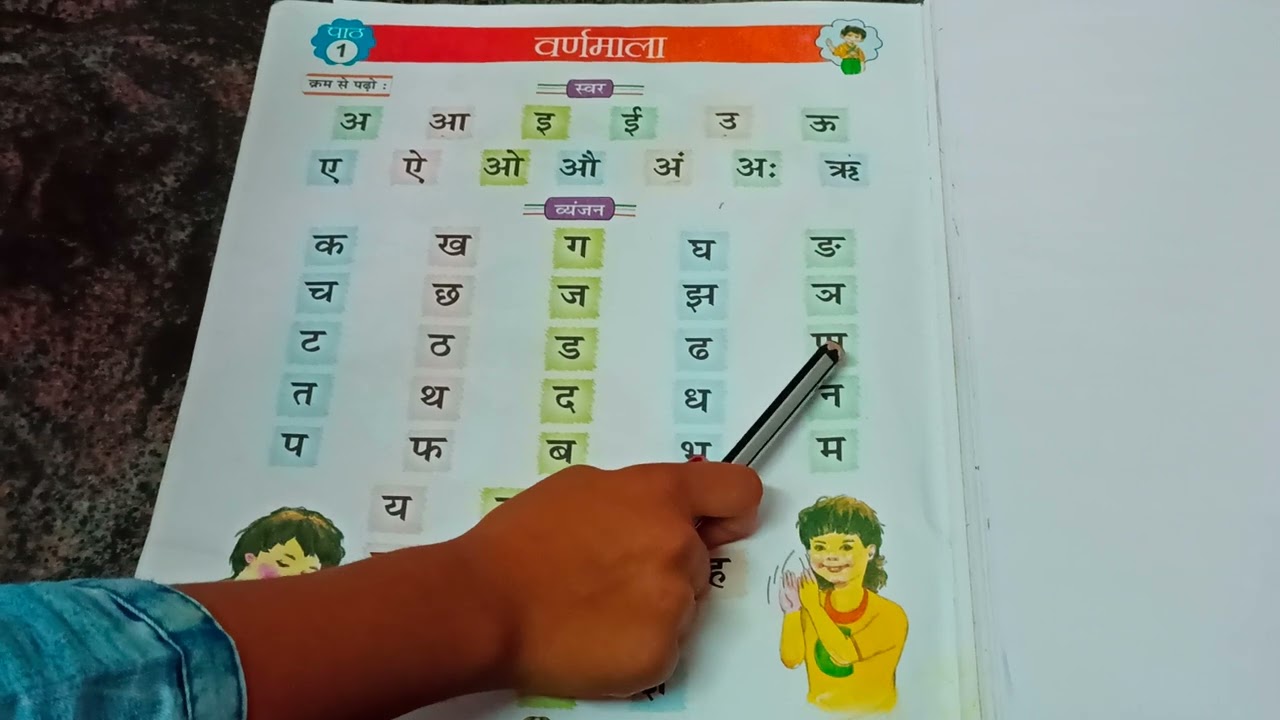 पाठ 1 वर्णमाला
क्रम से पढ़ो :
स्वर
अ आ इ ई उ ऊ
ए ऐ ओ औ अं अः ऋ
व्यंजन
क ख ग घ ङ
च छ ज झ ञ
ट ठ ड ढ ण
त थ द ध न
प फ ब भ म
य
ह